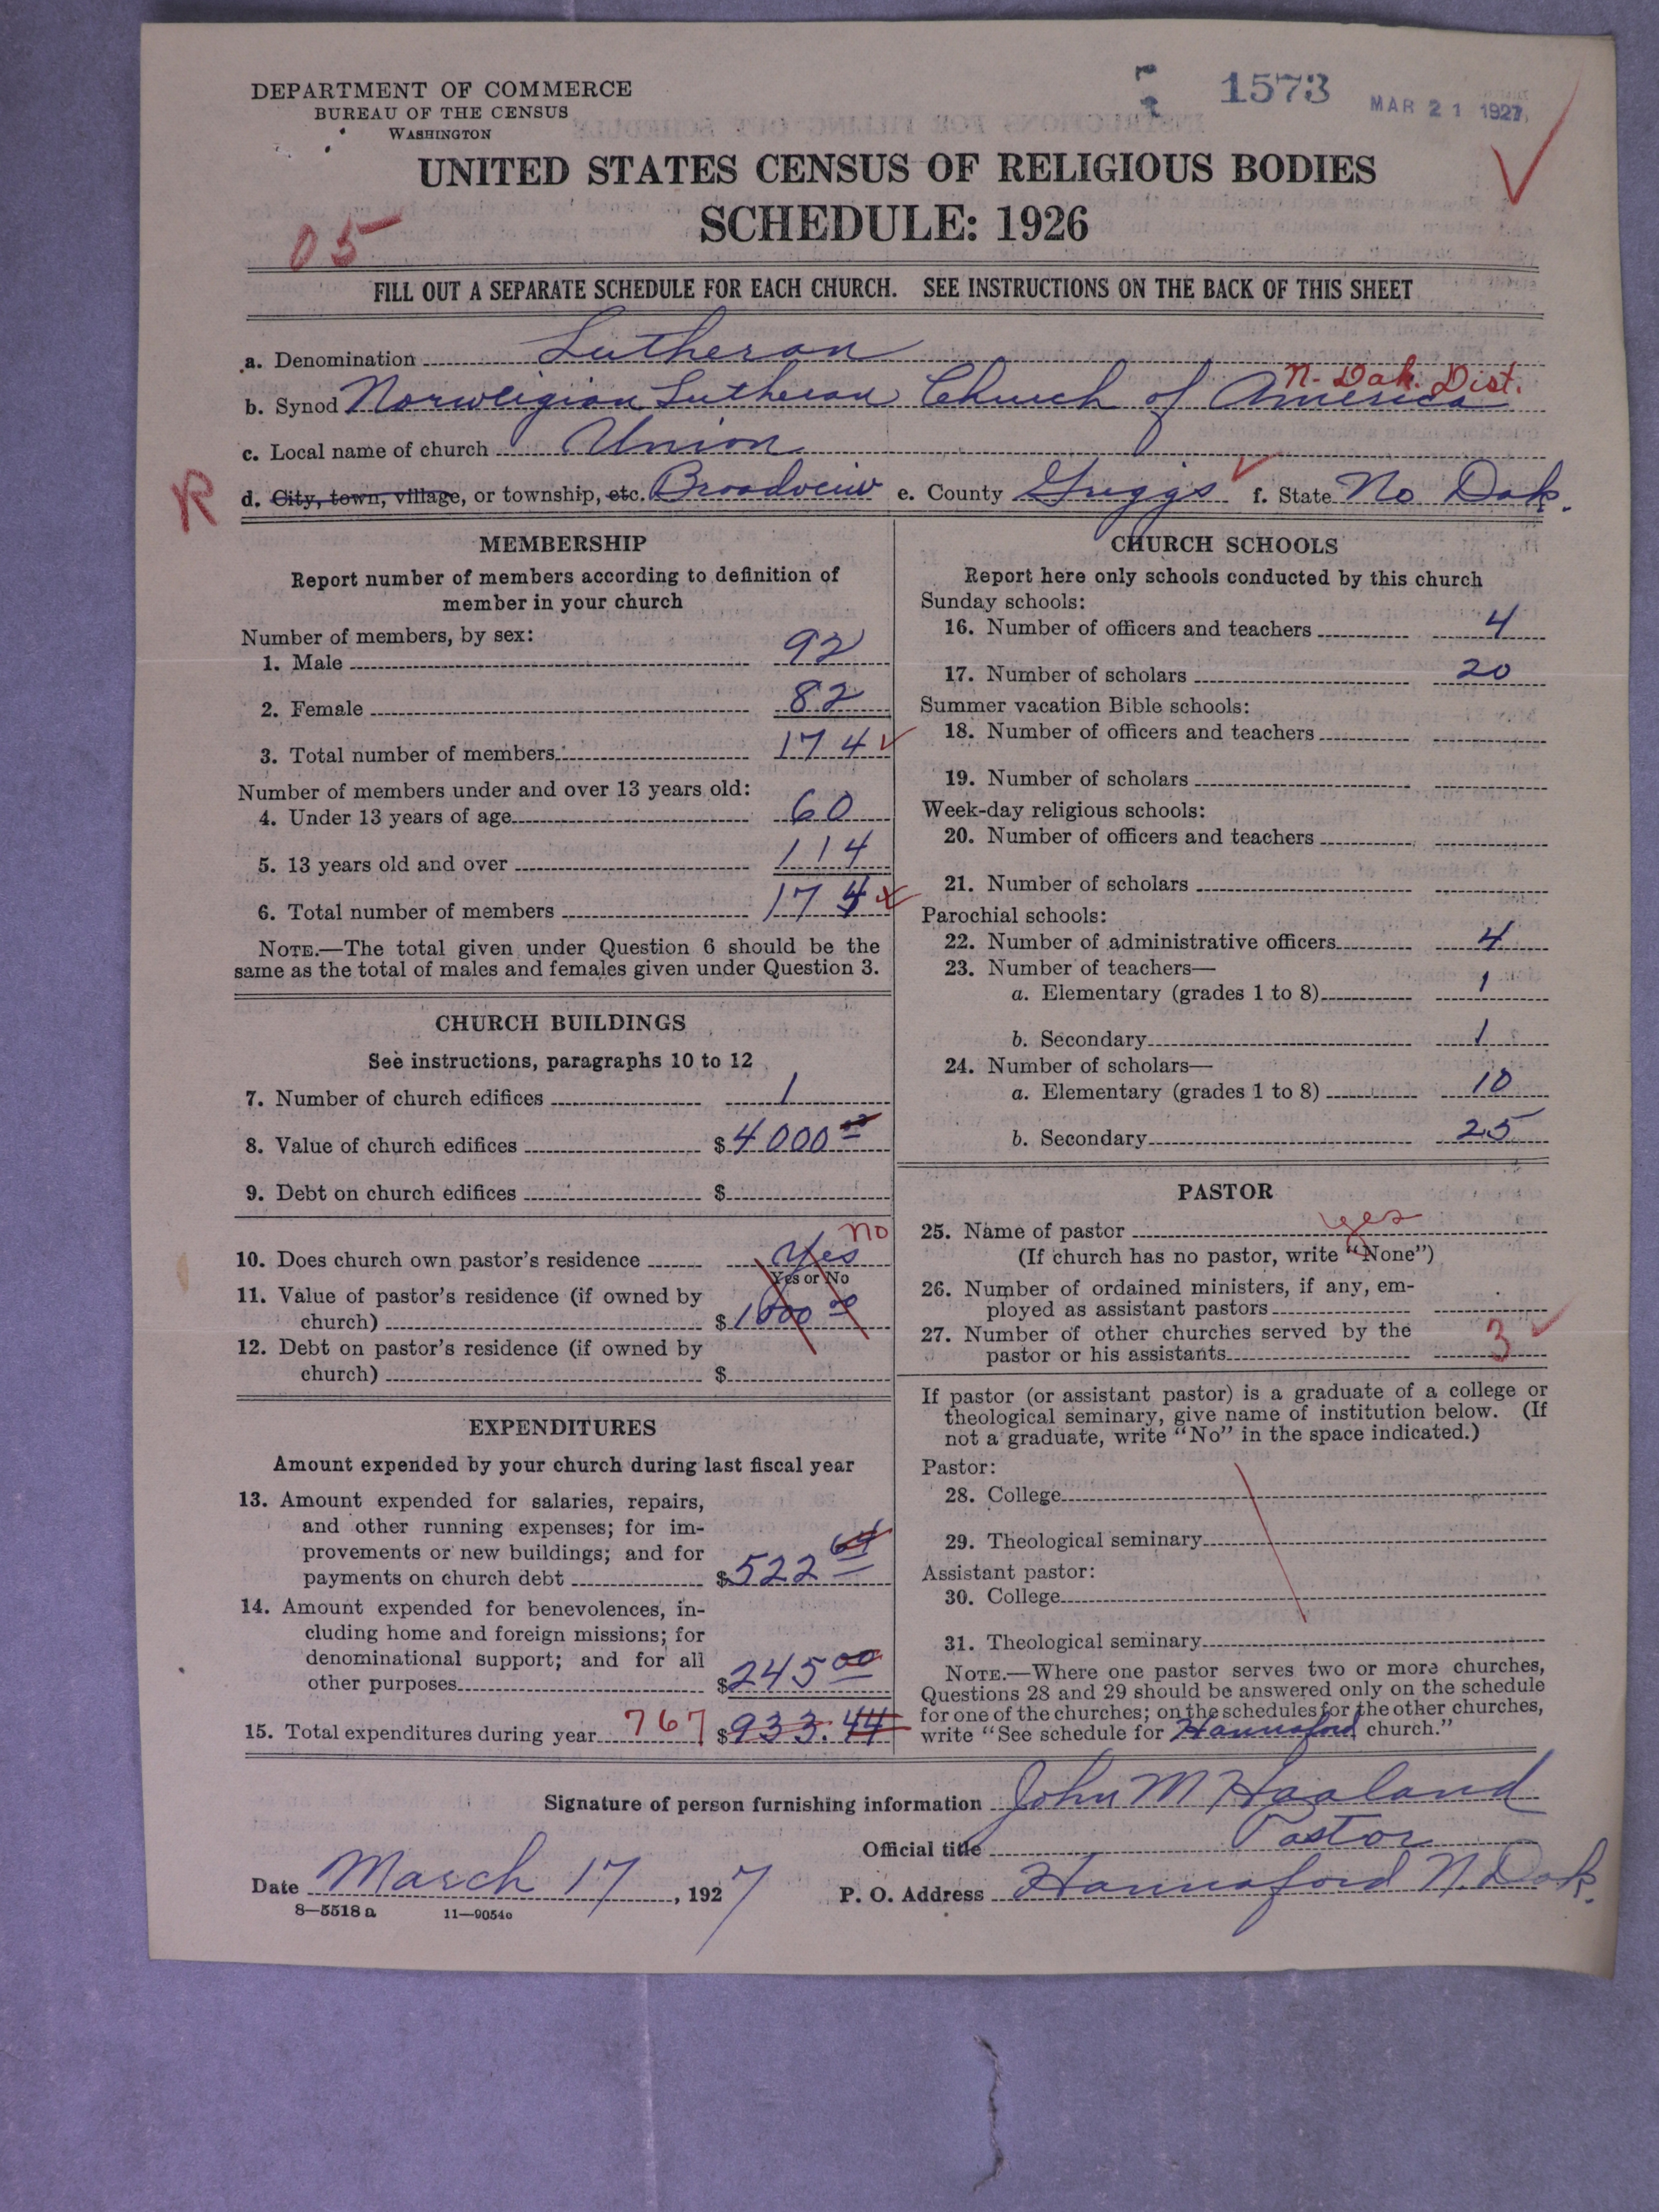 DEPARTMENT OF COMMERCE
BUREAU OF THE CENSUS
WASHINGTON
1573
MAR 21 1927
UNITED STATES CENSUS OF RELIGIOUS BODIES
SCHEDULE: 1926
05
FILL OUT A SEPARATE SCHEDULE FOR EACH CHURCH. SEE INSTRUCTIONS ON THE BACK OF THIS SHEET
a. Denomination Lutheran
N. Dak. Dist.
b. Synod Norweigian Lutheran Church of America
c. Local name of church Union
R
d. City, town, village, or township, etc. Broadveiw e. County Griggs f. State No Dak.
MEMBERSHIP
Report number of members according to definition of
member in your church
Number of members, by sex:
1. Male 92
2. Female 82
3. Total number of members 174
Number of members under and over 13 years old:
4. Under 13 years of age 60
5. 13 years old and over 114
6. Total number of members 174
NOTE.—The total given under Question 6 should be the
same as the total of males and females given under Question 3.
CHURCH BUILDINGS
See instructions, paragraphs 10 to 12
7. Number of church edifices 1
8. Value of church edifices $4000
9. Debt on church edifices $
no
10. Does church own pastor's residence Yes
Yes or No
11. Value of pastor's residence (if owned by
church) $1000 00
12. Debt on pastor's residence (if owned by
church) $
EXPENDITURES
Amount expended by your church during last fiscal year
13. Amount expended for salaries, repairs,
and other running expenses; for im-
provements or new buildings; and for
payments on church debt $522 64
14. Amount expended for benevolences, in-
cluding home and foreign missions; for
denominational support; and for all
other purposes $245 00
15. Total expenditures during year 767 $933.44
CHURCH SCHOOLS
Report here only schools conducted by this church
Sunday schools:
16. Number of officers and teachers 4
17. Number of scholars 20
Summer vacation Bible schools:
18. Number of officers and teachers
19. Number of scholars
Week-day religious schools:
20. Number of officers and teachers
21. Number of scholars
Parochial schools:
22. Number of administrative officers 4
23. Number of teachers—
a. Elementary (grades 1 to 8) 1
b. Secondary 1
24. Number of scholars—
a. Elementary (grades 1 to 8) 10
b. Secondary 25
PASTOR
25. Name of pastor yes
(If church has no pastor, write "None")
26. Number of ordained ministers, if any, em-
ployed as assistant pastors
27. Number of other churches served by the
pastor or his assistants 3
If pastor (or assistant pastor) is a graduate of a college or
theological seminary, give name of institution below. (If
not a graduate, write "No" in the space indicated.)
Pastor:
28. College
29. Theological seminary
Assistant pastor:
30. College
31. Theological seminary
NOTE.—Where one pastor serves two or more churches,
Questions 28 and 29 should be answered only on the schedule
for one of the churches; on the schedules for the other churches,
write "See schedule for Hannaford church."
Signature of person furnishing information John M Haaland
Official title Pastor
Date March 17, 1927 P. O. Address Hannaford N. Dak.
8—5518 a 11—9054o